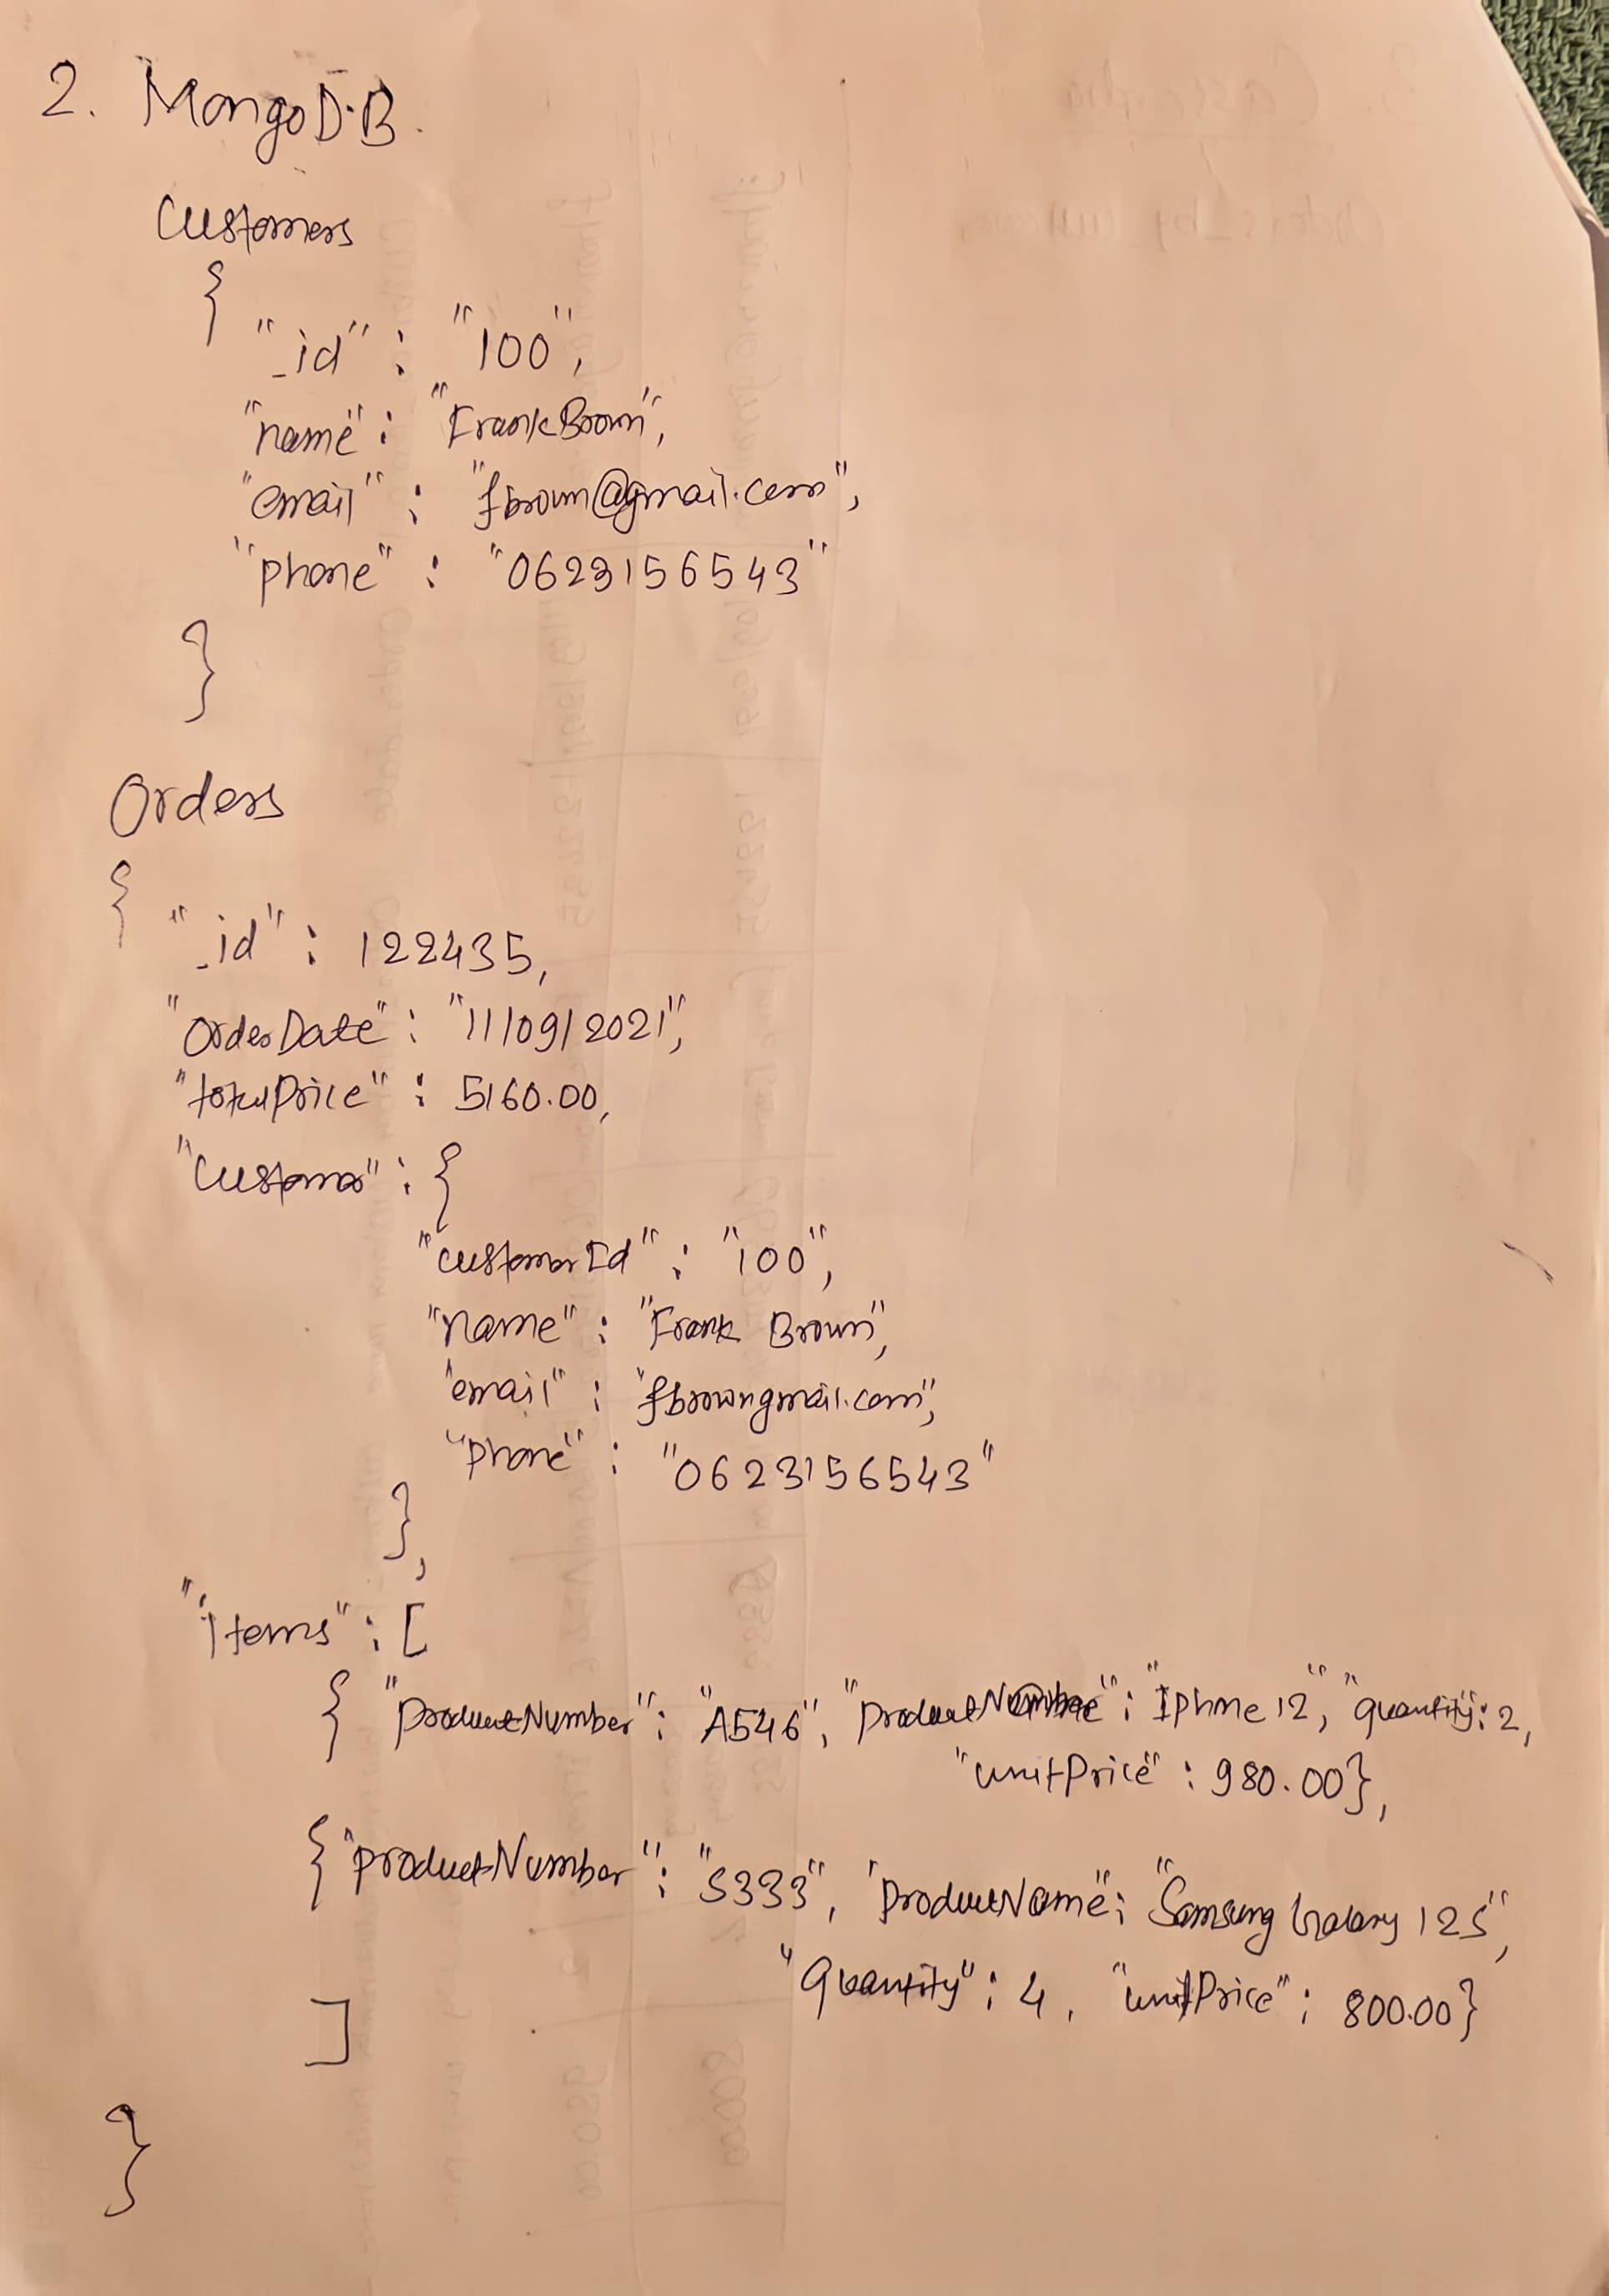 2. MongoDB.
Customers
{
"_id" : "100",
"name" : "Frank Brown",
"email" : "fbrown@gmail.com",
"phone" : "0623156543"
}
Orders
{
"_id" : 122435,
"OrderDate" : "11/09/2021",
"totalPrice" : 5160.00,
"Customer" : {
"customerId" : "100",
"name" : "Frank Brown",
"email" : "fbrowngmail.com",
"phone" : "0623156543"
},
"items" : [
{ "ProductNumber" : "A546", "ProductName" : "Iphone 12", "quantity": 2,
"unitPrice" : 980.00},
{"productNumber" : "S333", "ProductName" : "Samsung Galaxy 12S",
"Quantity" : 4, "unitPrice" : 800.00}
]
}